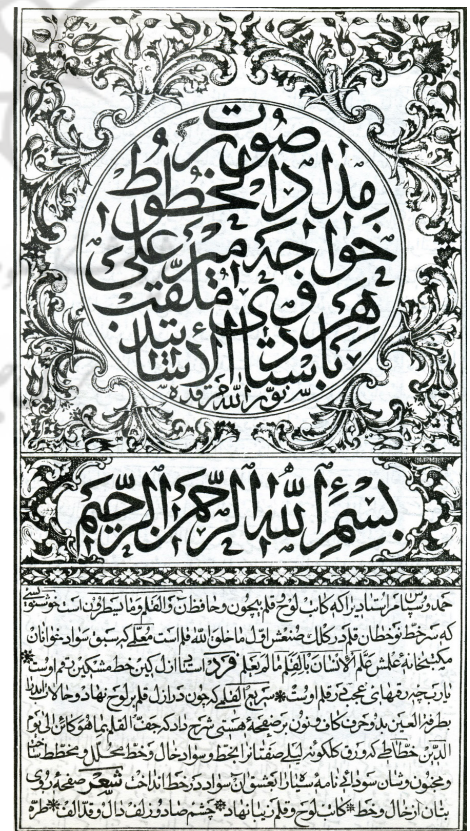 صورت
مداد الخطوط
خواجه میر علی
هروی ملقب
باستاد الاساتید
نور الله مرقده
بسم الله الرحمن الرحیم
حمد و سپاس مر استادیرا که کاتب لوح و قلم بیچون و حافظ ن والقلم و ما یسطرون است
که سر خط نوخطان قلم در کلک صنعش اول ما خلق الله قلم است معلمی که سبق سواد خوانان
مکتبخانه علمش علم الانسان بالقلم ما لم یعلم فرد از ازل کین خط مشکین رقم اوست
یارب چه رقمهای عجب در قلم اوست سریع القلمی که چون در ازل قلم بر لوح نهاد و حالا
بطرفة العین بدو حرف کاف و نون بر صفحه هستی شرح داد که جف القلم بما هو کائن الی یوم
الدین خطاطی که ورق کلکونه لیلی صفتانرا بخط و سواد خال و خط
و مجنون وشان سودائی نامه سیاه را بعشق آن سواد در خط انداخت شعر صفحه روی
بتان از خال و خط کاتب لوح و قلم زیبا نهاد چشم صاد و زلف دال و قد الف طره